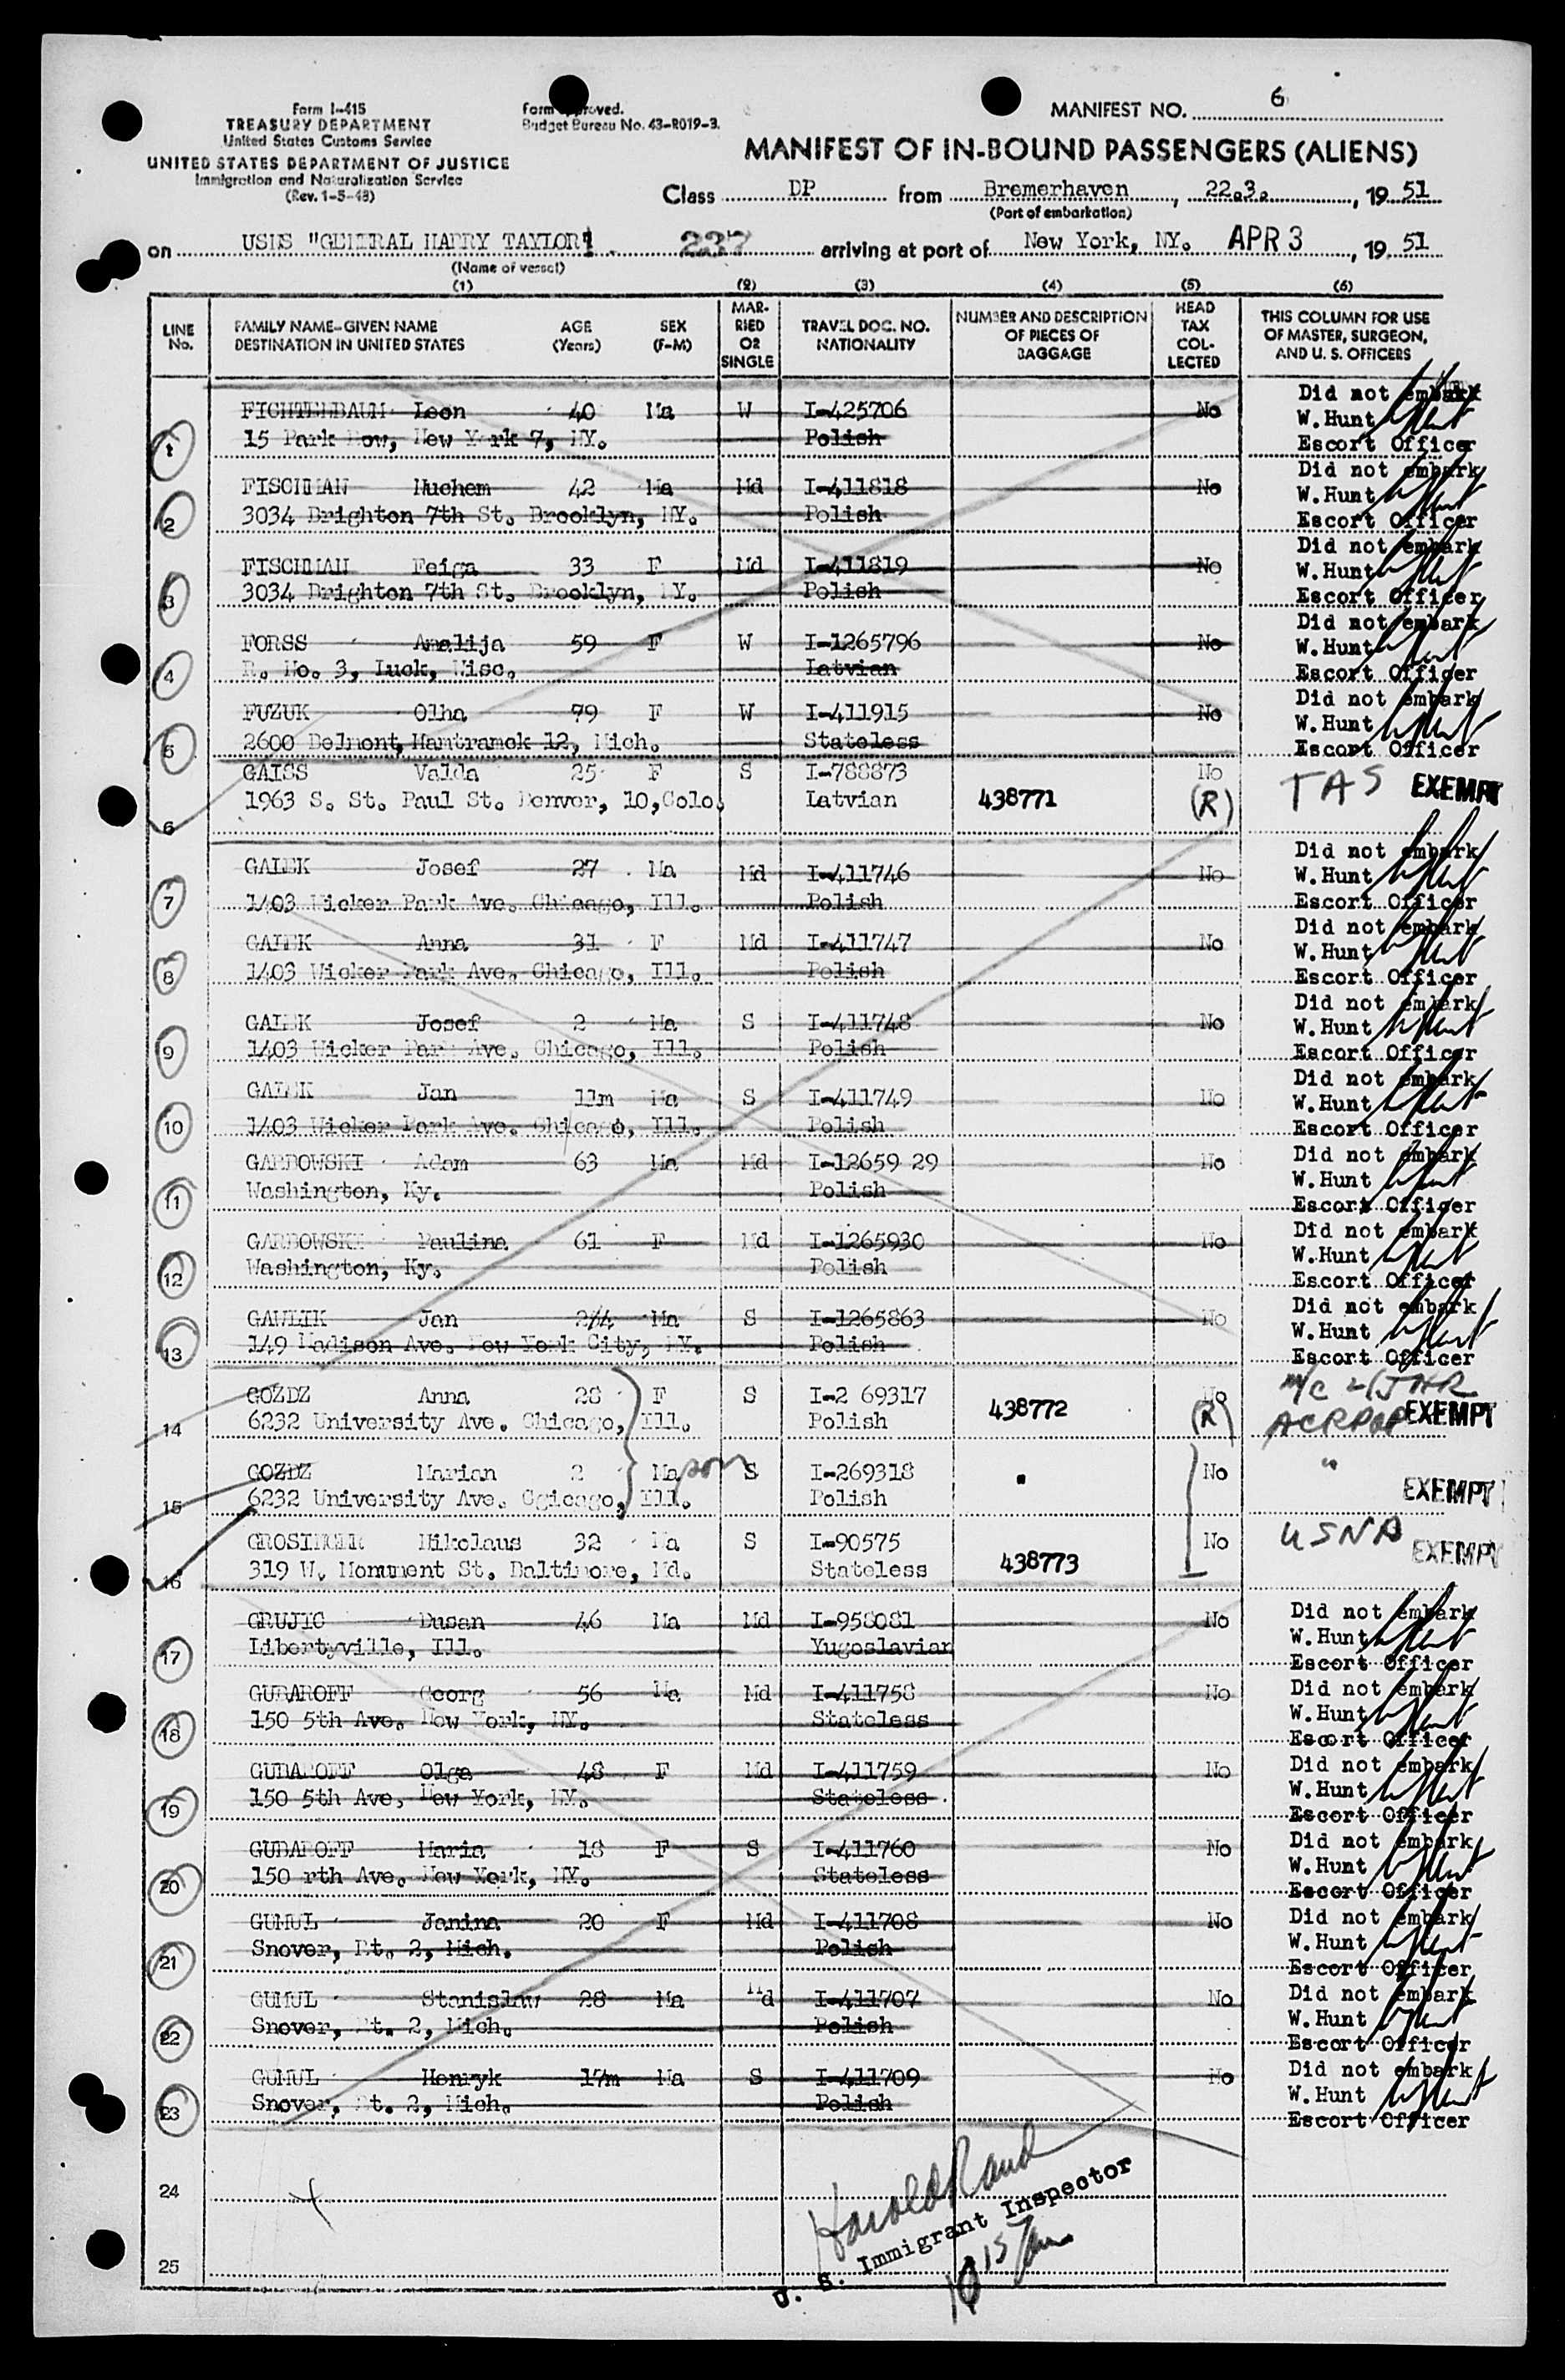 Form I-415
TREASURY DEPARTMENT
United States Customs Service
UNITED STATES DEPARTMENT OF JUSTICE
Immigration and Naturalization Service
(Rev. 1-5-48)
Form
Budget Bureau No. 43-R019-3.
MANIFEST NO. 6
MANIFEST OF IN-BOUND PASSENGERS (ALIENS)
Class DP from Bremerhaven, 22.3., 19 51
(Port of embarkation)
on USNS "GENERAL HARRY TAYLOR" 237 arriving at port of New York, NY. APR 3, 19 51
(Name of vessel)
(1) (2) (3) (4) (5) (6)
LINE No. FAMILY NAME-GIVEN NAME AGE (Years) SEX (F-M) DESTINATION IN UNITED STATES MARRIED OR SINGLE TRAVEL DOC. NO. NATIONALITY NUMBER AND DESCRIPTION OF PIECES OF BAGGAGE HEAD TAX COLLECTED THIS COLUMN FOR USE OF MASTER, SURGEON, AND U. S. OFFICERS
FICHTENBAUM Leon 40 Ma W I-425706 No Did not embark
1 15 Park Row, New York 7, NY. Polish W.Hunt
Escort Officer
FISCHMAN Nuchem 42 Ma Md I-411818 No Did not embark
2 3034 Brighton 7th St. Brooklyn, NY. Polish W.Hunt
Escort Officer
FISCHMAN Feiga 33 F Md I-411819 No Did not embark
3 3034 Brighton 7th St. Brooklyn, NY. Polish W.Hunt
Escort Officer
FORSS Amalija 59 F W I-1265796 No Did not embark
4 R. No. 3, Luck, Wisc. Latvian W.Hunt
Escort Officer
FUZUK Olha 79 F W I-411915 No Did not embark
5 2600 Belmont, Hamtramck 12, Mich. Stateless W.Hunt
Escort Officer
GAISS Valda 25 F S I-788873 No TAS EXEMPT
6 1963 S. St. Paul St. Denver, 10, Colo. Latvian 438771 (R)
GALEK Josef 27 Ma Md I-411746 No Did not embark
7 1403 Wicker Park Ave. Chicago, Ill. Polish W.Hunt
Escort Officer
GALEK Anna 31 F Md I-411747 No Did not embark
8 1403 Wicker Park Ave. Chicago, Ill. Polish W.Hunt
Escort Officer
GALEK Josef 2 Ma S I-411748 No Did not embark
9 1403 Wicker Park Ave. Chicago, Ill. Polish W.Hunt
Escort Officer
GALEK Jan 11m Ma S I-411749 No Did not embark
10 1403 Wicker Park Ave. Chicago, Ill. Polish W.Hunt
Escort Officer
GARBOWSKI Adam 63 Ma Md I-12659 29 No Did not embark
11 Washington, Ky. Polish W.Hunt
Escort Officer
GARBOWSKI Paulina 61 F Md I-1265930 No Did not embark
12 Washington, Ky. Polish W.Hunt
Escort Officer
GAWLIK Jan Ma S I-1265863 No Did not embark
13 149 Madison Ave. New York City, NY. Polish W.Hunt
Escort Officer
GOZDZ Anna 28 F S I-2 69317 No
14 6232 University Ave. Chicago, Ill. Polish 438772 (R) EXEMPT
GOZDZ Marian 2 Ma son S I-269318 " No "
15 6232 University Ave. Cgicago, Ill. Polish EXEMPT
GROSINGER Nikolaus 32 Ma S I-90575 No USNA
16 319 W. Monument St. Baltimore, Md. Stateless 438773 EXEMPT
GRUJIC Dusan 46 Ma Md I-958081 No Did not embark
17 Libertyville, Ill. Yugoslavian W.Hunt
Escort Officer
GUBAROFF Georg 56 Ma Md I-411758 No Did not embark
18 150 5th Ave. New York, NY. Stateless W.Hunt
Escort Officer
GUBAROFF Olga 48 F Md I-411759 No Did not embark
19 150 5th Ave. New York, NY. Stateless W.Hunt
Escort Officer
GUBAROFF Maria 18 F S I-411760 No Did not embark
20 150 rth Ave. New York, NY. Stateless W.Hunt
Escort Officer
GUMUL Janina 20 F Md I-411708 No Did not embark
21 Snover, Rt. 2, Mich. Polish W.Hunt
Escort Officer
GUMUL Stanislaw 28 Ma Md I-411707 No Did not embark
22 Snover, Rt. 2, Mich. Polish W.Hunt
Escort Officer
GUMUL Henryk 17m Ma S I-411709 No Did not embark
23 Snover, Rt. 2, Mich. Polish W.Hunt
Escort Officer
24
Harold Rand
25
U. S. Immigrant Inspector